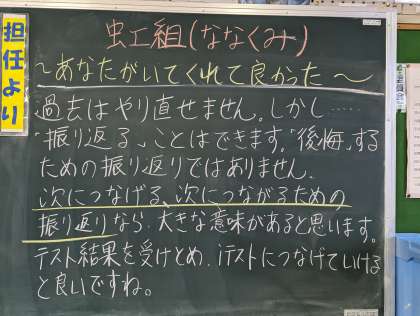 担任より
虹組(ななくみ)
～あなたがいてくれて良かった～
過去はやり直せません。しかし……
「振り返る」ことはできます。「後悔」する
ための振り返りではありません。
次につなげる、次につながるための
振り返りなら、大きな意味があると思います。
テスト結果を受けとめ、iテストにつなげていける
と良いですね。